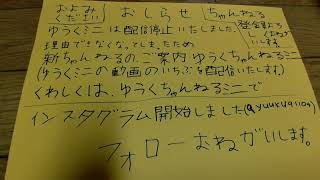 およみください
おしらせ
ちゃんねる
登録よろしくおねがいします。
ゆうくミニは配信停止いたしました。
理由できなくなってしまったため
新ちゃんねるのご案内 ゆうくちゃんねるミニ
(ゆうくミニの動画のいちぶを配信いたします)
くわしくは、ゆうくちゃんねるミニで
インスタグラム開始しました
フォローおねがいします。